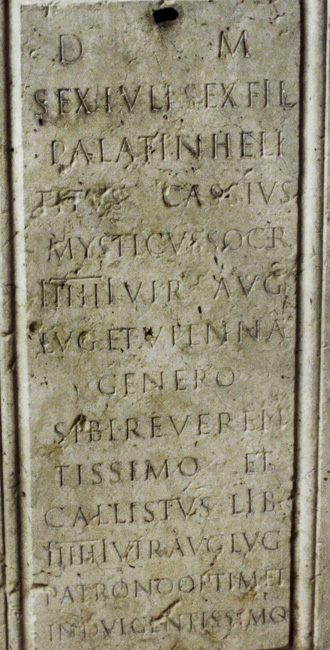 D M
SEX IVLI SEX FIL
PALATIN HELI
TITVS CASSIVS
MYSTICVS SOCR
IIIIIIVIR AVG
LVG ET VIENNA
GENERO
SIBI REVEREN
TISSIMO ET
CALLISTVS LIB
IIIIIIVIR AVG LVG
PATRONO OPTIM ET
INDVLGENTISSIMO